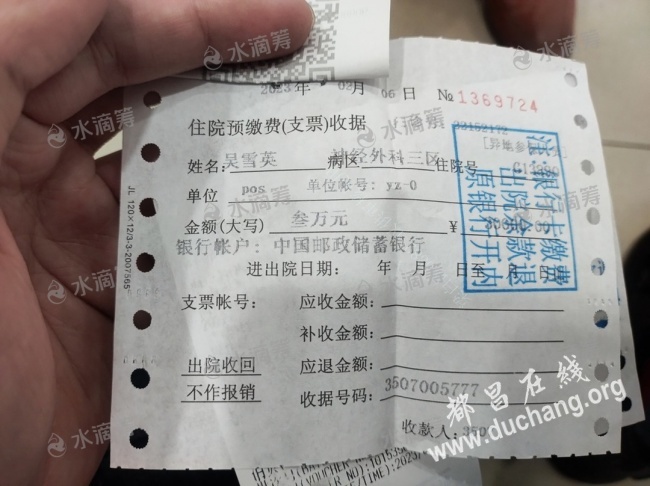 2023年 02月 06日 № 1369724
住院预缴费(支票)收据 33152172
姓名: 吴雪英 病区 神经外科三区 住院号
[异地参
单位 pos 单位帐号: yz-0
金额(大写) 叁万元 ¥
银行帐户: 中国邮政储蓄银行
进出院日期: 年 月 日至 月 日
支票帐号: 应收金额:
补收金额:
出院收回 应退金额:
不作报销 收据号码: 3507005777
收款人: 350
注:银行卡缴费
出院余款退
原银行卡内
JL 120×12/3-3-2007565
都昌在线
www.duchang.org
水滴筹